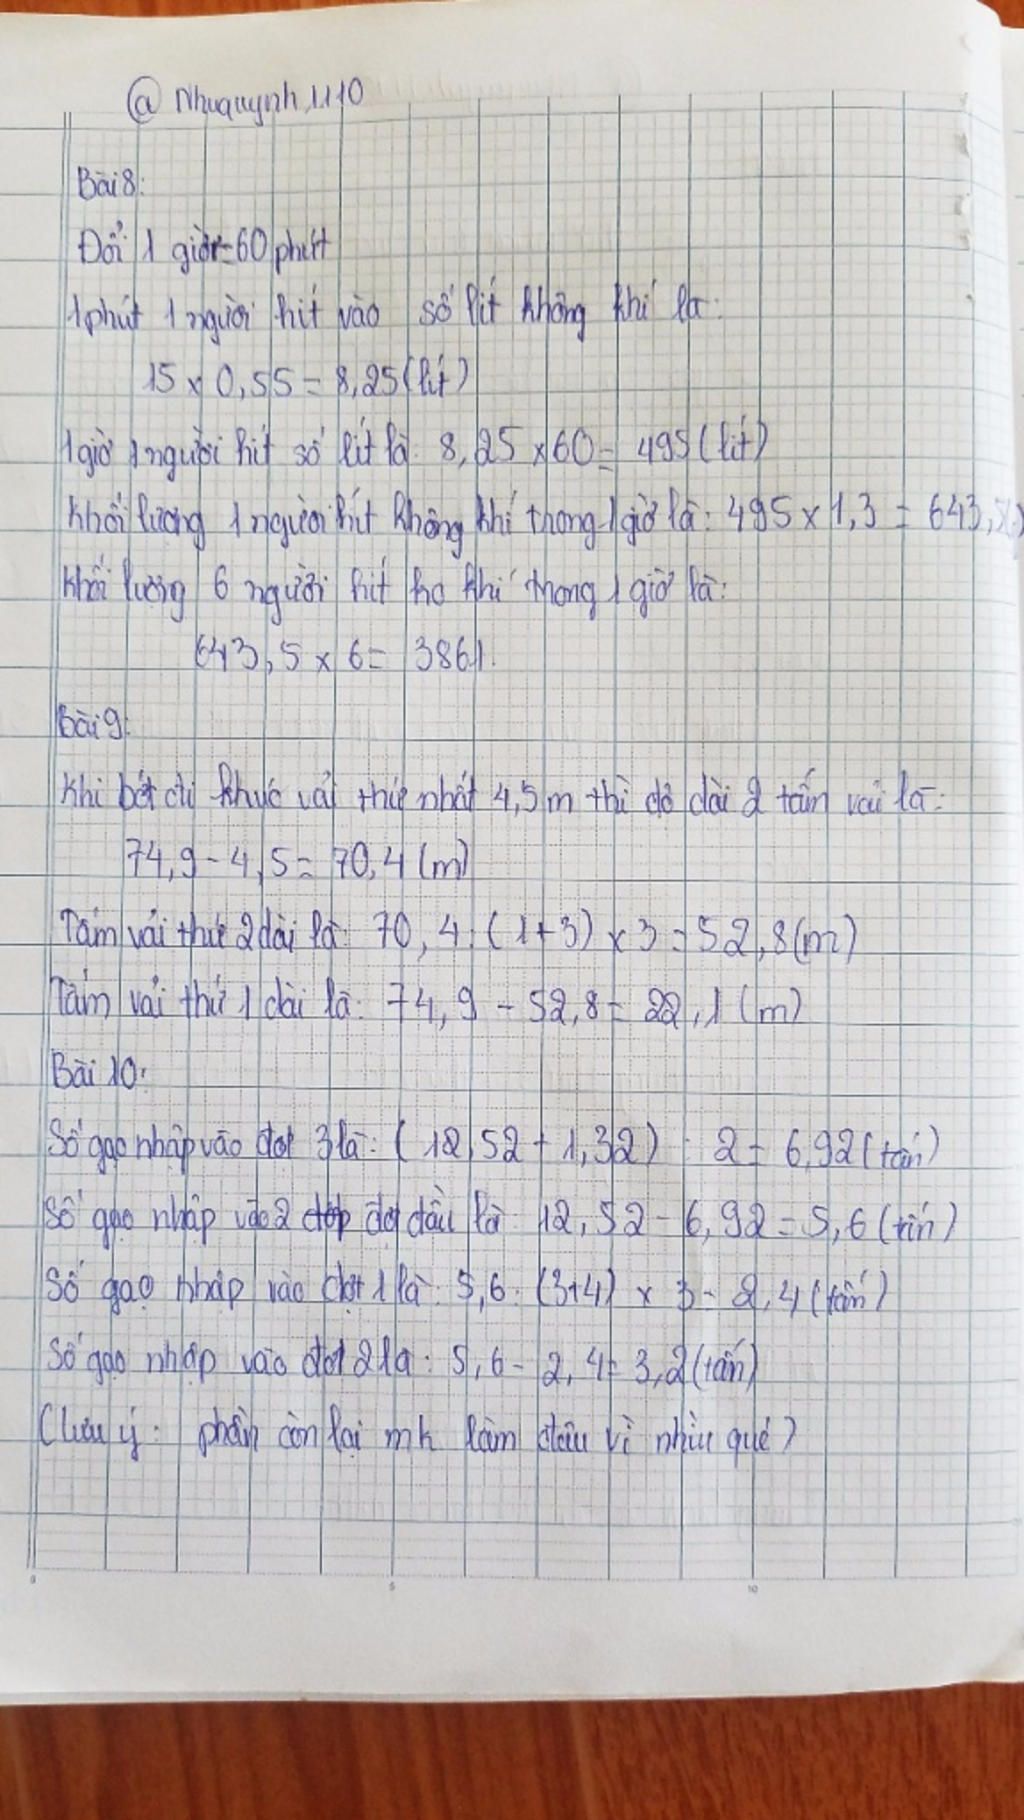 @ Nhuquynh1110
Bài 8:
Đổi 1 giờ=60 phút
1 phút 1 người hít vào số lít không khí là:
15 x 0,55 = 8,25 (lít)
1 giờ 1 người hít số lít là: 8,25 x 60 = 495 (lít)
Khối lượng 1 người hít không khí trong 1 giờ là: 495 x 1,3 = 643,5
Khối lượng 6 người hít ko khí trong 1 giờ là:
643,5 x 6 = 3861.
Bài 9:
Khi bớt đi khúc vải thứ nhất 4,5 m thì độ dài 2 tấm vải là:
74,9 - 4,5 = 70,4 (m)
Tấm vải thứ 2 dài là: 70,4 : (1+3) x 3 = 52,8 (m)
Tấm vải thứ 1 dài là: 74,9 - 52,8 = 22,1 (m)
Bài 10:
Số gạo nhập vào đợt 3 là: (12,52 + 1,32) : 2 = 6,92 (tấn)
Số gạo nhập vào 2 đợt đầu là: 12,52 - 6,92 = 5,6 (tấn)
Số gạo nhập vào đợt 1 là: 5,6 : (3+4) x 3 = 2,4 (tấn)
Số gạo nhập vào đợt 2 là: 5,6 - 2,4 = 3,2 (tấn)
(Lưu ý: phần còn lại mk làm sau vì nhìu quá)